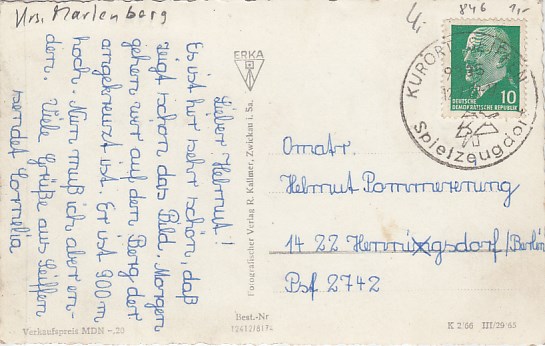 Krs. Marienberg
846 1,-
Lieber Helmut!
Es ist hier sehr schön, daß
zeigt schon das Bild. Morgen
gehen wir auf den Berg der
angekreuzt ist. Er ist 900 m
hoch. Nun muß ich aber en-
den. Viele Grüße aus Seiffen
sendet Cornelia
Verkaufspreis MDN -,20
ERKA
Fotografischer Verlag R. Kallmer, Zwickau i. Sa.
Best.-Nr
KURORT SEIFFEN
Spielzeugdorf
DEUTSCHE
DEMOKRATISCHE REPUBLIK
10
Omatr.
Helmut Pommerenung
14 22 Hennigsdorf/Berlin
Psf 2742
K 2/66 III/29/65